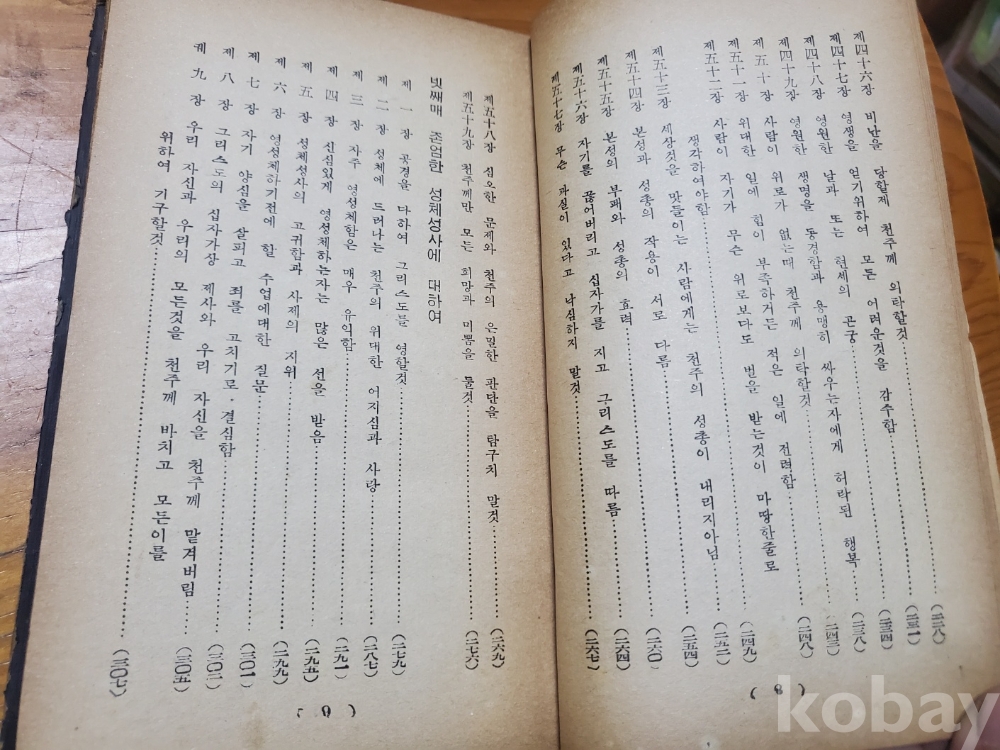 제四十六장 비난을 당할제 천주께 의탁할것 (二二八)
제四十七장 영생을 얻기위하여 모든 어려운것을 감수함 (二三一)
제四十八장 영원한 날과 또는 현세의 곤궁 (二三四)
제四十九장 영원한 생명을 동경함과 용맹히 싸우는자에게 허락된 행복 (二三八)
제五十장 사람이 위로가 없는때 천주께 의탁할것 (二四三)
제五十一장 위대한 일에 힘이 부족하거든 적은 일에 전력함 (二四八)
제五十二장 사람이 자기가 무슨 위로보다도 벌을 받는것이 마땅한줄로
생각하여야함 (二四九)
제五十三장 세상것을 맛들이는 사람에게는 천주의 성총이 내리지아님 (二五二)
제五十四장 본성과 성총의 작용이 서로 다름 (二五四)
제五十五장 본성의 부패와 성총의 효력 (二六〇)
제五十六장 자기를 끊어버리고 십자가를 지고 그리스도를 따름 (二六四)
제五十七장 무슨 과실이 있다고 낙심하지 말것 (二六七)
( 8 )
제五十八장 심오한 문제와 천주의 은밀한 판단을 탐구치 말것 (二六九)
제五十九장 천주께만 모든 희망과 미쁨을 둘것 (二七六)
넷째매 존엄한 성체성사에 대하여
제 一 장 공경을 다하여 그리스도를 영할것 (二七九)
제 二 장 성체에 드러나는 천주의 위대한 어지심과 사랑 (二八七)
제 三 장 자주 영성체함은 매우 유익함 (二九一)
제 四 장 신심있게 영성체하는자는 많은 선을 받음 (二九五)
제 五 장 성체성사의 고귀함과 사제의 지위 (二九九)
제 六 장 영성체하기전에 할 수업에대한 질문 (三〇一)
제 七 장 자기 양심을 살피고 죄를 고치기로 결심함 (三〇二)
제 八 장 그리스도의 십자가상 제사와 우리 자신을 천주께 맡겨버림 (三〇五)
제 九 장 우리 자신과 우리의 모든것을 천주께 바치고 모든이를
위하여 기구할것 (三〇七)
( 9 )
kobay